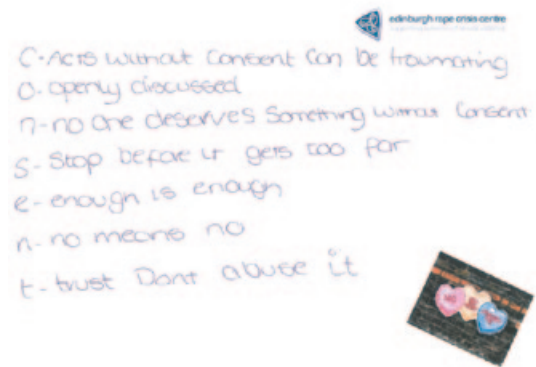 edinburgh rape crisis centre
C-Acts without Consent Can be traumating
O-openly discussed
n-no one deserves something without Consent
S-Stop before it gets too far
e-enough is enough
n-no means no
t-trust Dont abuse it